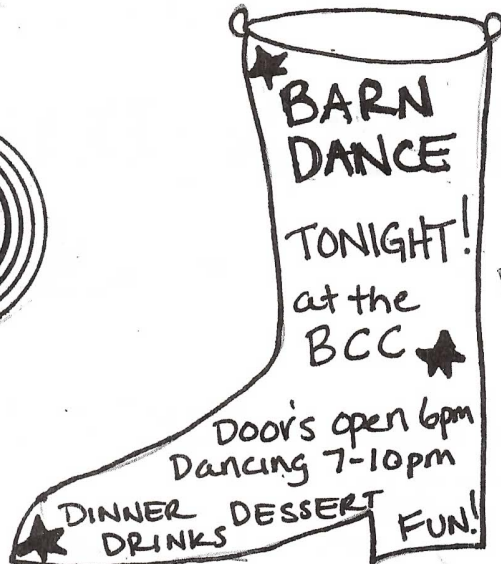 BARN
DANCE
TONIGHT!
at the
BCC
Door's open 6pm
Dancing 7-10pm
DINNER DESSERT
DRINKS FUN!